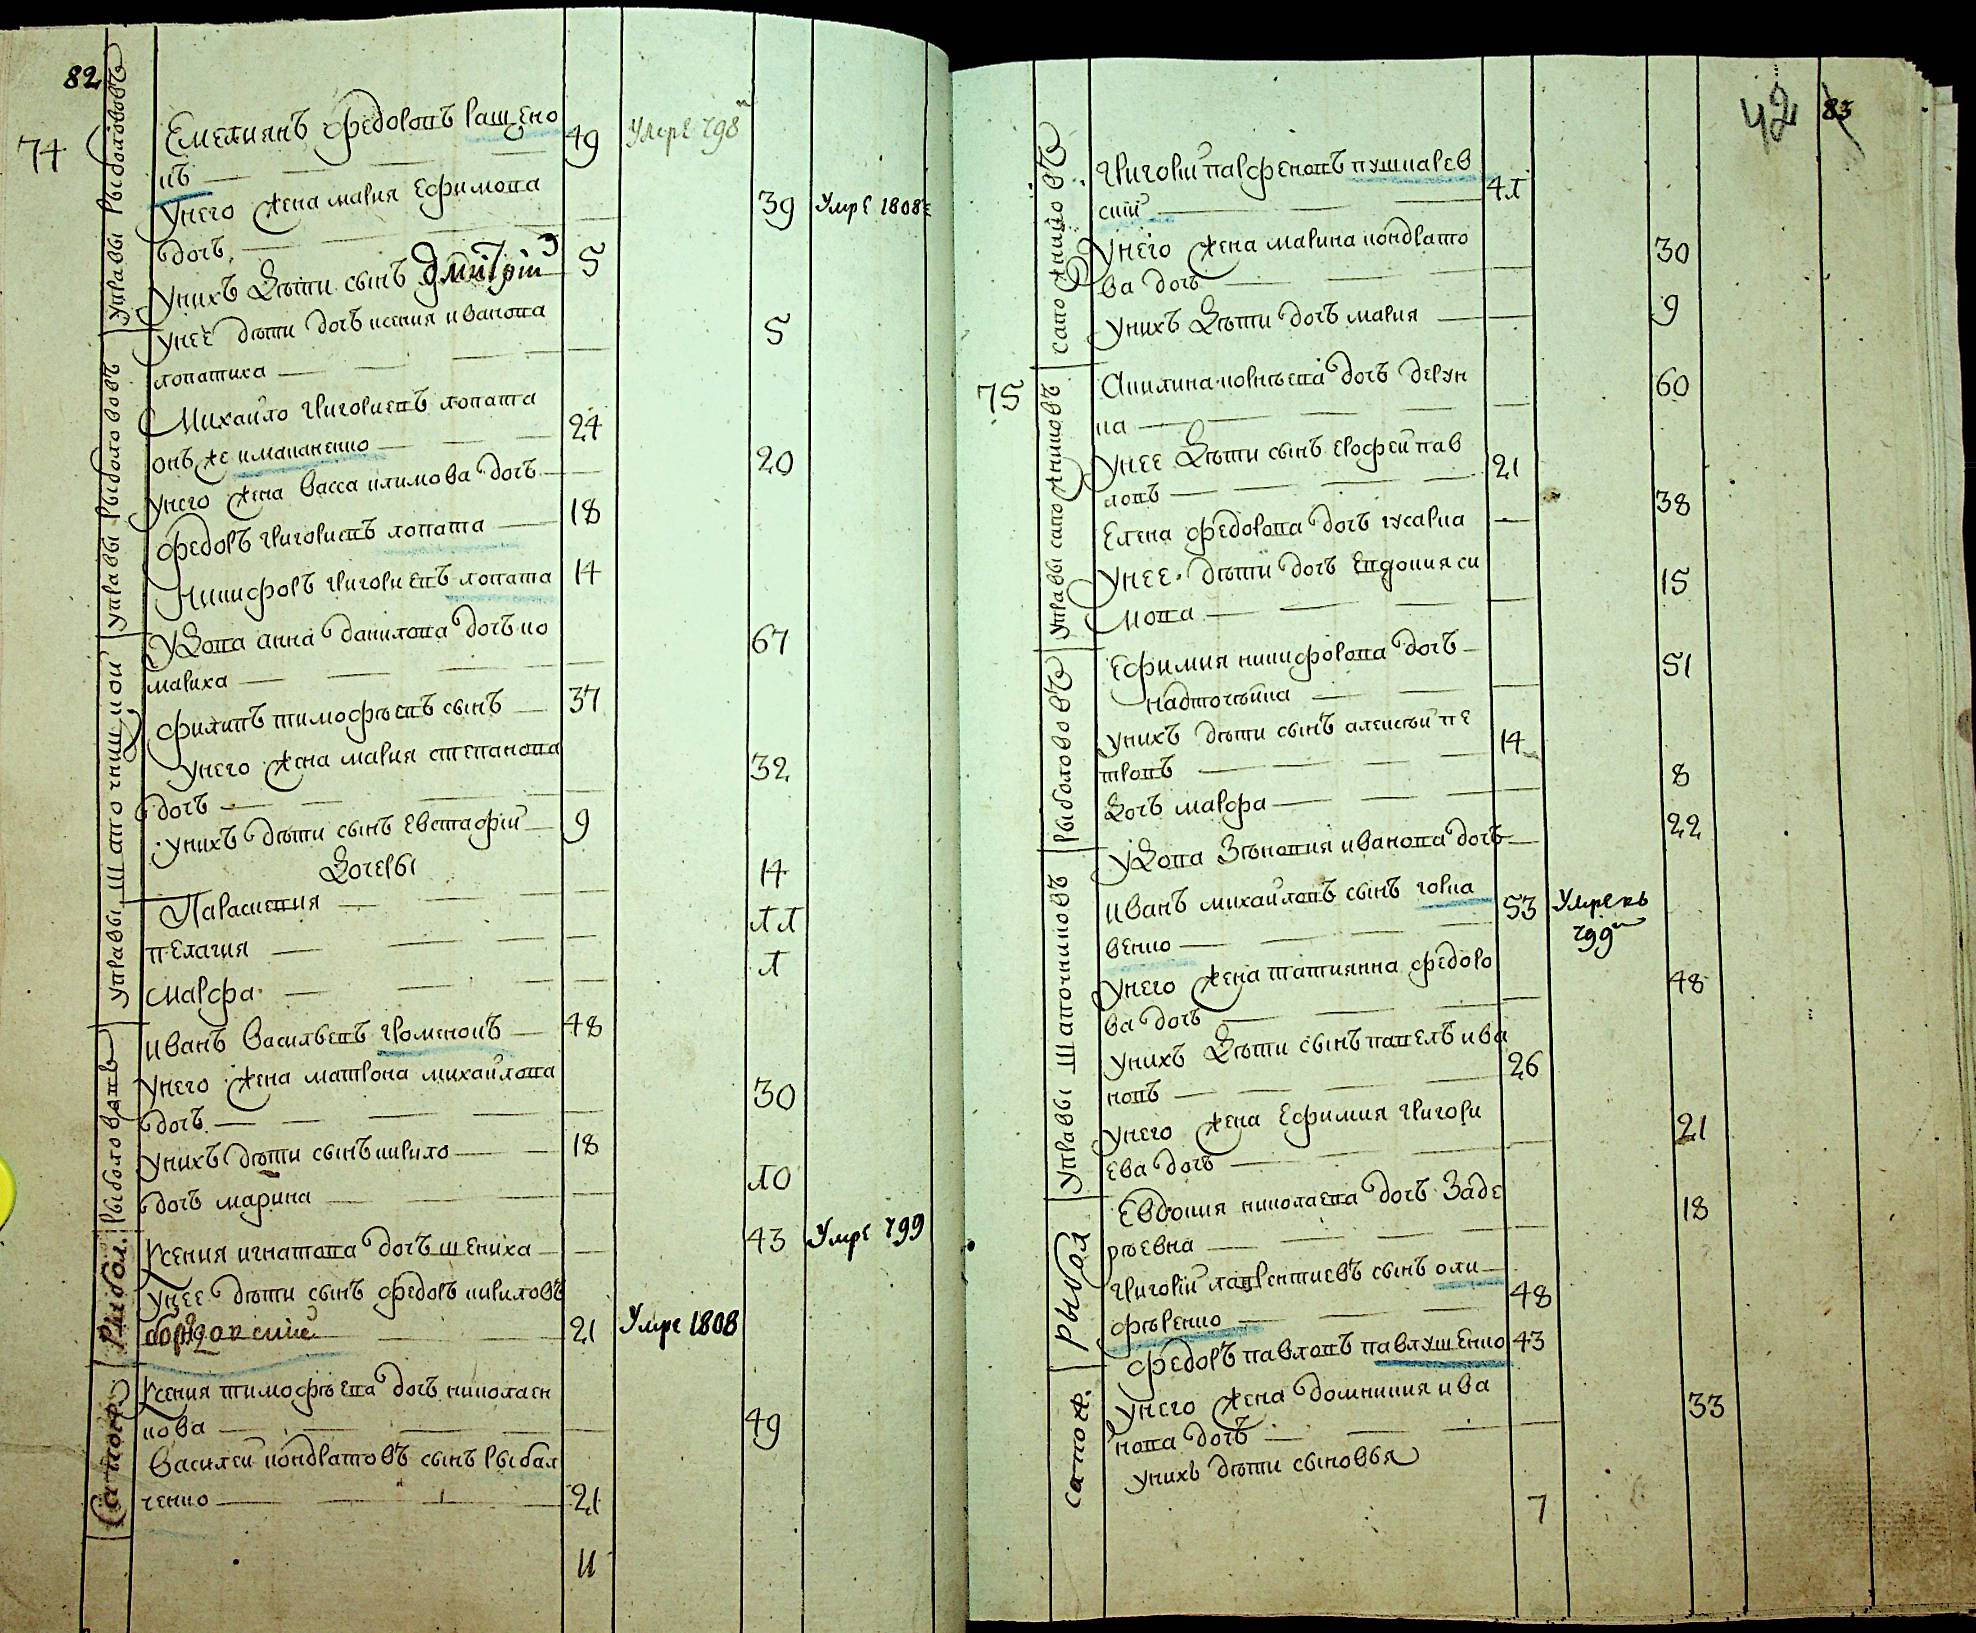 82
74
Управы рыболововъ
Емелианъ Федоровъ ращено
къ 49 Умре 798
Унего жена мария Ефимова
дочь 39 Умре 1808
Унихъ дѣти сынъ Дмитрій 5
Унее дѣти дочь ксения иванова
лопатиха 5
Управы рыболововъ
Михайло григориевъ лопата
онъ же 24
Унего жена васса климова дочь 20
Федоръ григориевъ лопата 18
Никифоръ григориевъ лопата 14
Управы Шапочницкой
Удова анна данилова дочь ко
мариха 67
Филипъ тимофѣевъ сынъ 37
Унего жена мария степанова
дочь 32
Унихъ дѣти сынъ Евстафій 9
Дочеры
Параскевия 14
пелагия 11
Марфа 1
рыболововъ
иванъ Васильевъ хоменокъ 48
Унего жена матрона михайлова
дочь 30
Унихъ дѣти сынъ кирило 18
дочь марина 10
Рыбол.
Ксения игнатова дочь шениха 43 Умре 799
Унее дѣти сынъ федоръ кириловъ
21 Умре 1808
Сапож
Ксения тимофѣева дочь николаен
кова 49
Василей кондратовъ сынъ рыбал
ченко 21
11
42 83
сапожниковъ
григорій парфеновъ пушкарев
ский 41
Унего жена марина кондрато
ва дочь 30
Унихъ дѣти дочь мария 9
75
Управы сапожниковъ
Акилина корнѣева дочь дерун
ка 60
Унее дѣти сынъ ерофей пав
ловъ 21
Елена федорова дочь гусарка 38
Унее дѣти дочь Евдокия си
мова 15
рыболововъ
Ефимия никифорова дочь
надточѣйка 51
Унихъ дѣти сынъ алексѣй пе
тровъ 14
Дочь марфа 8
Удова Зѣновия иванова дочь 22
Управы Шапочниковъ
иванъ михайловъ сынъ горка
венко 53 Умре въ
799
Унего жена татиянна федоро
ва дочь 48
Унихъ дѣти сынъ павелъ ива
новъ 26
Унего жена Ефимия григори
ева дочь 21
Евдокия николаева дочь Заде
рѣевна 18
рыбол
григорій лаврентиевъ сынъ оли
фѣренко 48
сапож.
Федоръ павловъ павлушенко 43
Унего жена домникия ива
нова дочь 33
Унихъ дѣти сыновья
7